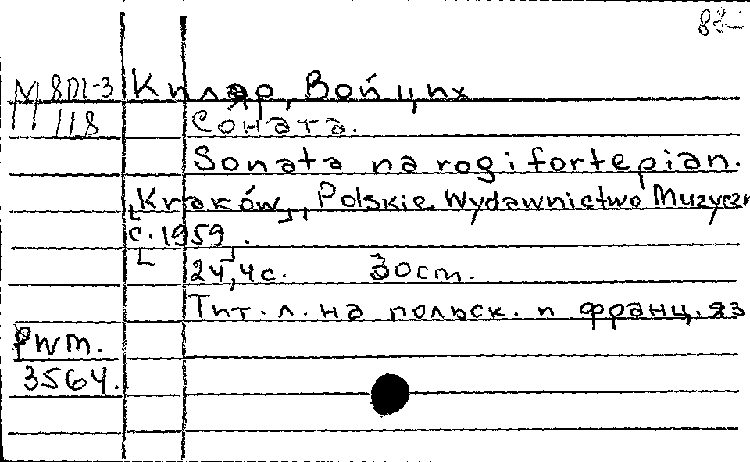 М 8П1-3 Киляр, Войцих
118 Соната.
Sonata na rog i fortepian.
[Kraków], Polskie Wydawnictwo Muzyczn
[c.1959].
24,4с. 30cm.
Тит.л. на польск. и франц. яз
Pwm.
3564.